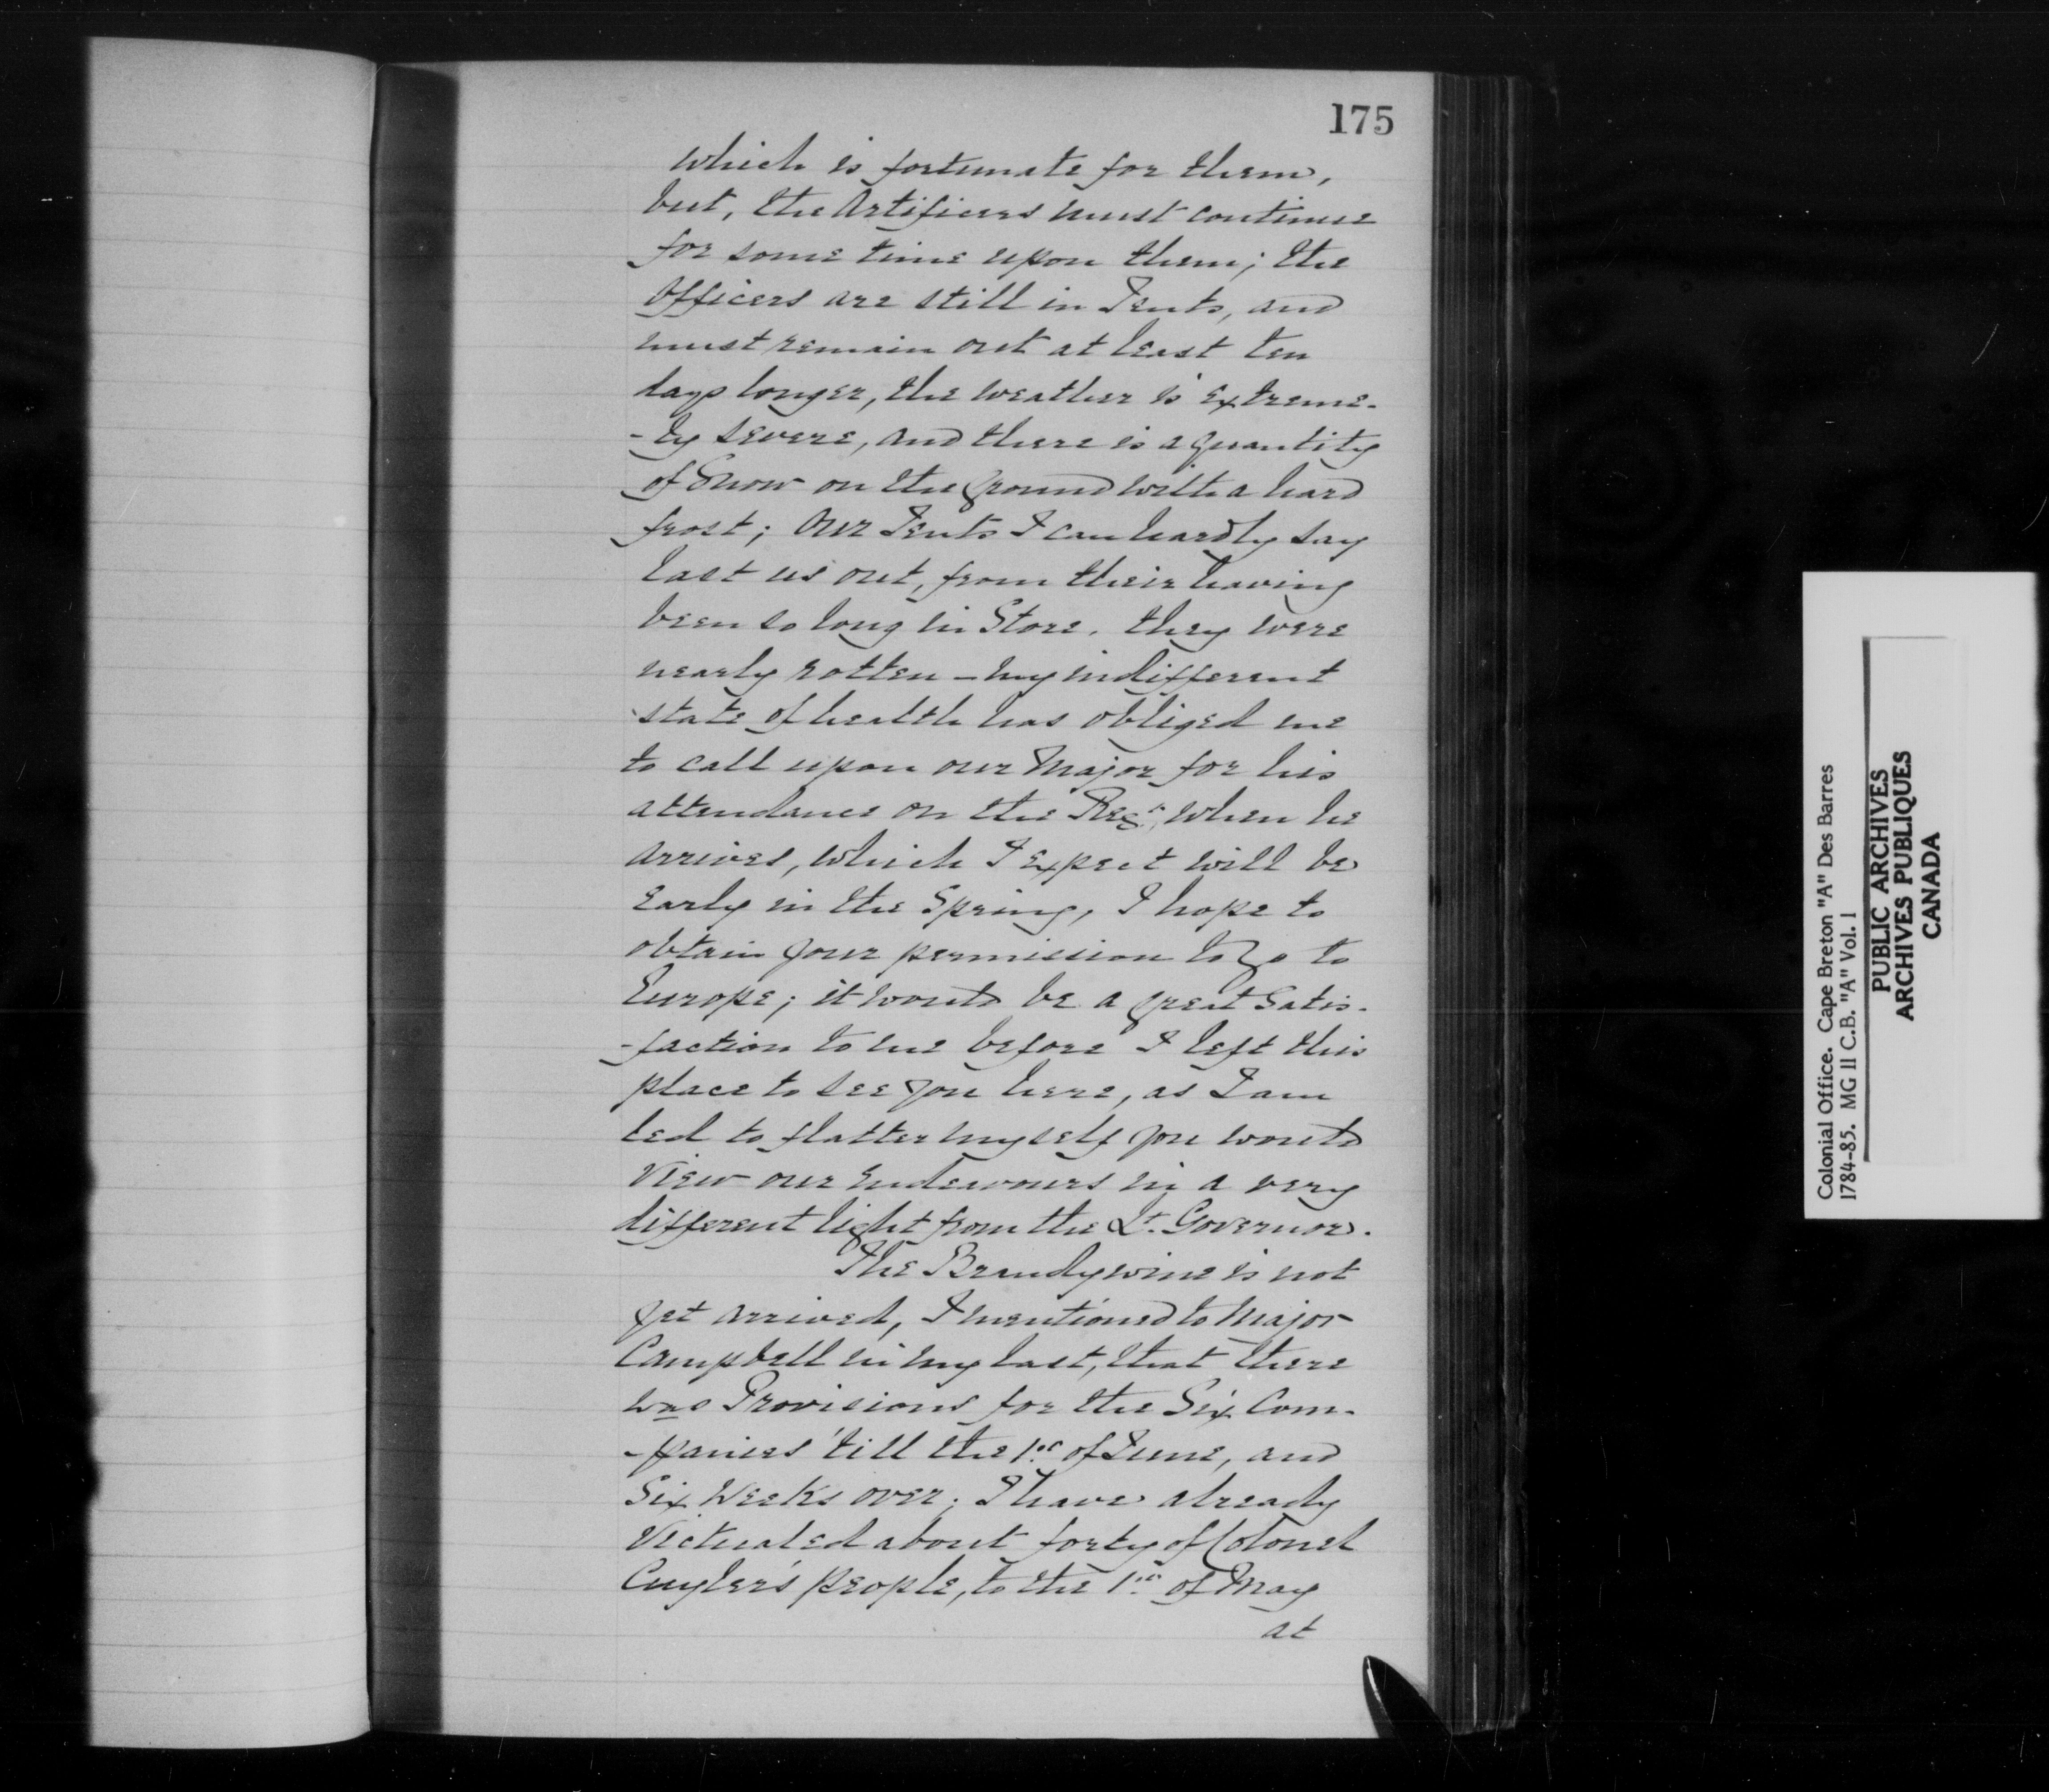 175
which is fortunate for them,
but, the Artificers must continue
for some time upon them; the
Officers are still in Tents, and
must remain out at least ten
days longer, the weather is extreme-
-ly severe, and there is a quantity
of Snow on the ground with a hard
frost; Our Tents I can hardly say
last us out, from their having
been so long in Store, they were
nearly rotten – my indifferent
state of health has obliged me
to call upon our Major for his
attendance on the Regt. when he
arrives, which I expect will be
early in the Spring, I hope to
obtain your permission to go to
Europe; it would be a great Satis-
-faction to me before I left this
place to see you here, as I am
led to flatter myself you would
view our Endeavours in a very
different light from the Lt. Governor.
The Brandywine is not
yet arrived, I mentioned to Major
Campbell in my last, that there
was Provisions for the Six Com-
-panies 'till the 1st of June, and
Six Weeks over; I have already
Victualed about forty of Colonel
Cuyler's people, to the 1st of May
at
Colonial Office. Cape Breton "A" Des Barres
1784-85. MG II C.B. "A" Vol. 1
PUBLIC ARCHIVES
ARCHIVES PUBLIQUES
CANADA